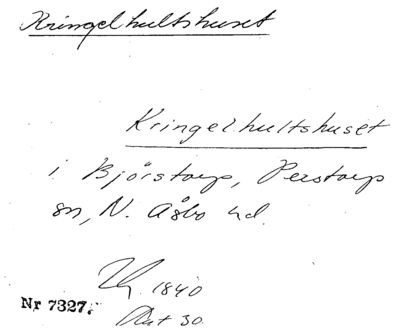 Kringelhultshuset
Kringelhultshuset
i Björstorp, Perstorps
sn, N. Åsbo hd.
1840
Nr 7327.
Akt 30.